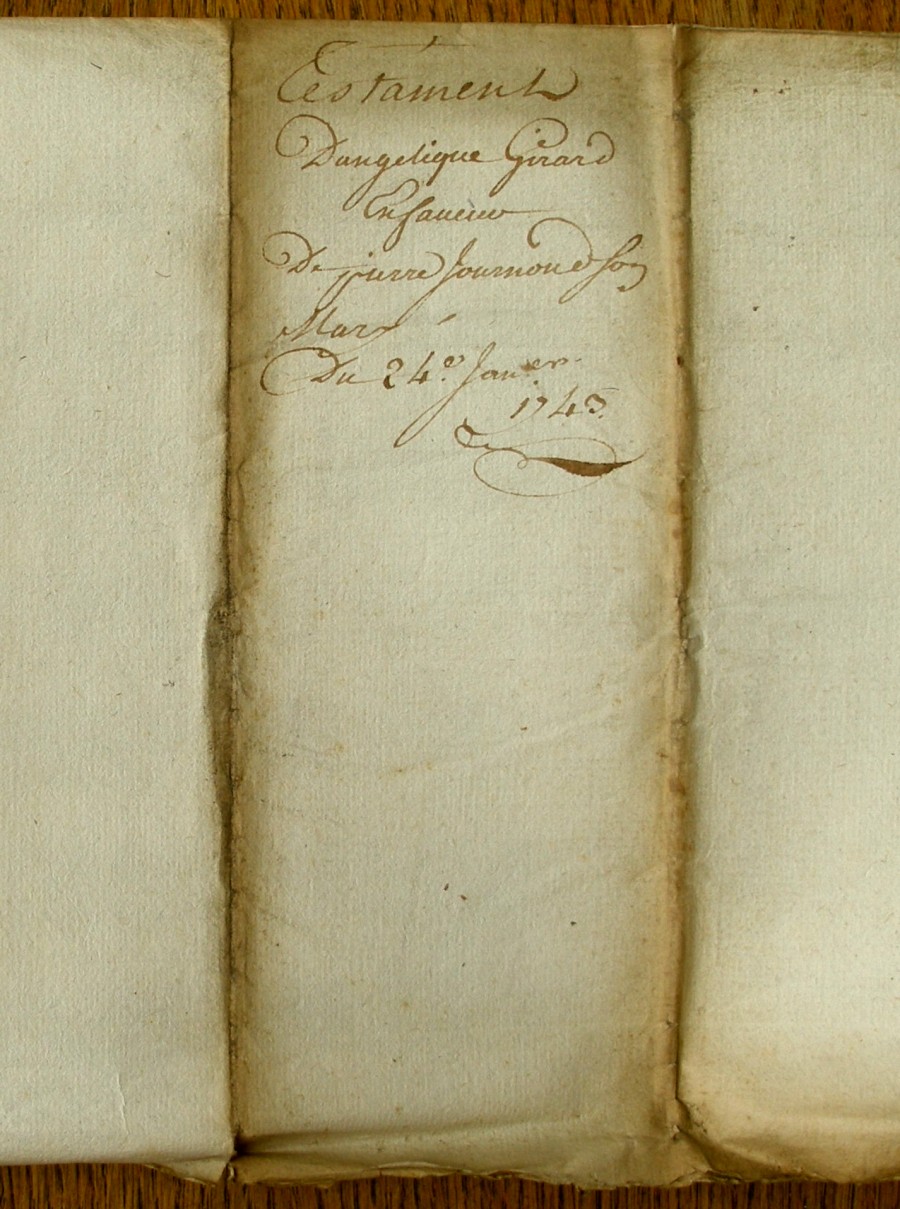 Testament
Dangelique Girard
En faueur
De pierre Journoud son
Mary
Du 24e. Janer.
1743.